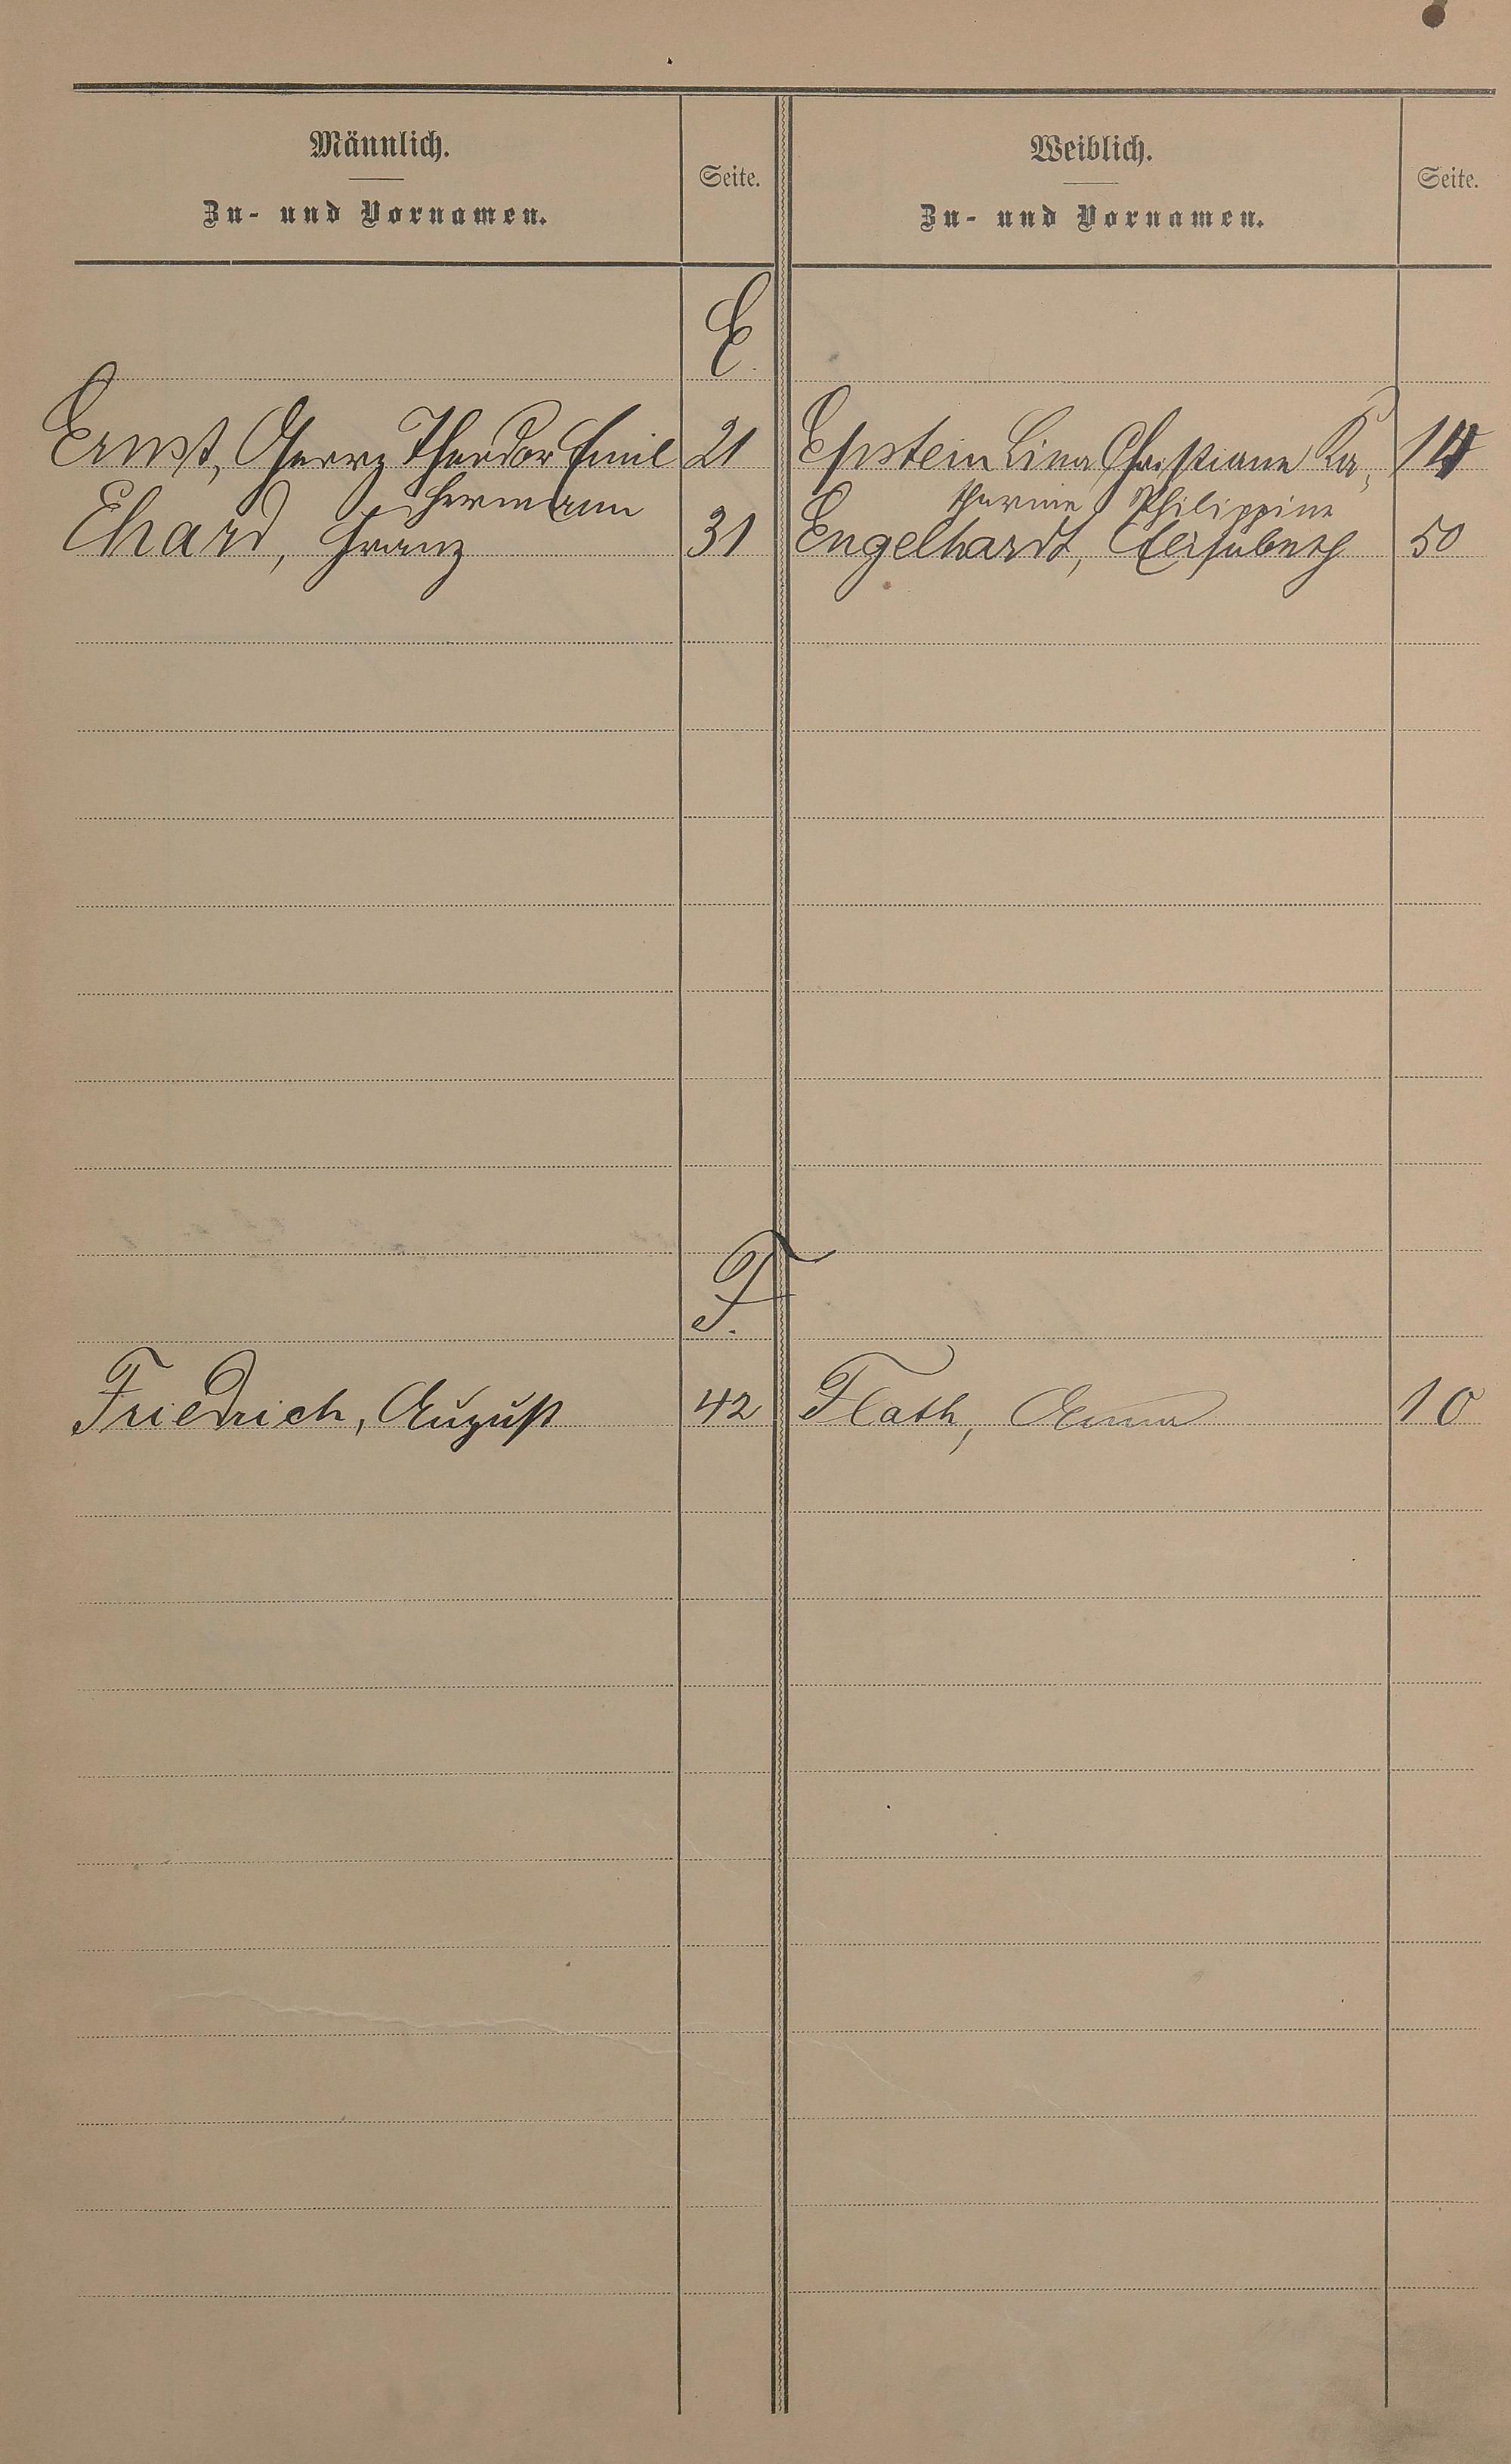 Männlich.
Zu- und Vornamen.
Seite.
Weiblich.
Zu- und Vornamen.
Seite.
E.
Ernst, Georg Theodor Emil 21
Hermann
Ehard, Franz 31
Epstein Lina Christiane Ka-
tharine Philippine
Engelhardt, Elisabeth 50
F.
Friedrich, August 42
Flath, Anna 10